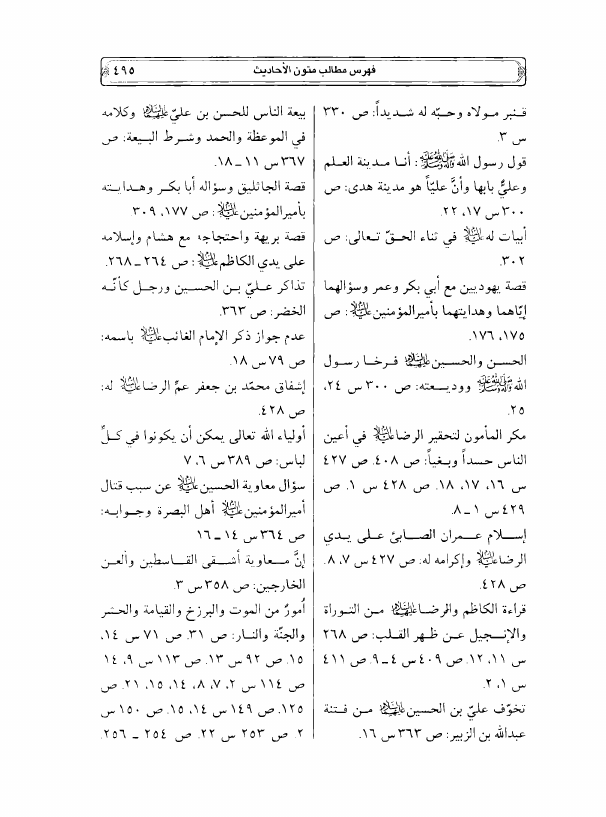 فهرس مطالب متون الأحاديث
٤٩٥
قنبر مولاه وحبّه له شديداً: ص ٣٣٠
س ٣.
قول رسول الله ﷺ: أنا مدينة العلم
وعليٌّ بابها وأنَّ عليّاً هو مدينة هدى: ص
٣٠٠ س ١٧، ٢٢.
أبيات له عليه السلام في ثناء الحقّ تعالى: ص
٣٠٢.
قصة يهوديين مع أبي بكر وعمر وسؤالهما
إيّاهما وهدايتهما بأميرالمؤمنين عليه السلام: ص
١٧٥، ١٧٦.
الحسن والحسين عليهما السلام فرخا رسول
الله ﷺ ووديعته: ص ٣٠٠ س ٢٤،
٢٥.
مكر المأمون لتحقير الرضا عليه السلام في أعين
الناس حسداً وبغياً: ص ٤٠٨. ص ٤٢٧
س ١٦، ١٧، ١٨. ص ٤٢٨ س ١. ص
٤٢٩ س ١ ـ ٨.
إسلام عمران الصابئ على يدي
الرضا عليه السلام وإكرامه له: ص ٤٢٧ س ٧، ٨.
ص ٤٢٨.
قراءة الكاظم والرضا عليهما السلام من التوراة
والإنجيل عن ظهر القلب: ص ٢٦٨
س ١١، ١٢. ص ٤٠٩ س ٤ ـ ٩. ص ٤١١
س ١، ٢.
تخوّف عليّ بن الحسين عليهما السلام من فتنة
عبدالله بن الزبير: ص ٣٦٣ س ١٦.
بيعة الناس للحسن بن عليّ عليهما السلام وكلامه
في الموعظة والحمد وشرط البيعة: ص
٣٦٧ س ١١ ـ ١٨.
قصة الجاثليق وسؤاله أبا بكر وهدايته
بأميرالمؤمنين عليه السلام: ص ١٧٧، ٣٠٩.
قصة بريهة واحتجاجه مع هشام وإسلامه
على يدي الكاظم عليه السلام: ص ٢٦٤ ـ ٢٦٨.
تذاكر عليّ بن الحسين ورجل كأنّه
الخضر: ص ٣٦٣.
عدم جواز ذكر الإمام الغائب عليه السلام باسمه:
ص ٧٩ س ١٨.
إشفاق محمّد بن جعفر عمِّ الرضا عليه السلام له:
ص ٤٢٨.
أولياء الله تعالى يمكن أن يكونوا في كلِّ
لباس: ص ٣٨٩ س ٦، ٧
سؤال معاوية الحسين عليه السلام عن سبب قتال
أميرالمؤمنين عليه السلام أهل البصرة وجوابه:
ص ٣٦٤ س ١٤ ـ ١٦
إنَّ معاوية أشقى القاسطين وألعن
الخارجين: ص ٣٥٨ س ٣.
أُمورٌ من الموت والبرزخ والقيامة والحشر
والجنّة والنار: ص ٣١. ص ٧١ س ١٤،
١٥. ص ٩٢ س ١٣. ص ١١٣ س ٩، ١٤
ص ١١٤ س ٢، ٧، ٨، ١٤، ١٥، ٢١. ص
١٢٥. ص ١٤٩ س ١٤، ١٥. ص ١٥٠ س
٢. ص ٢٥٣ س ٢٢. ص ٢٥٤ ـ ٢٥٦.